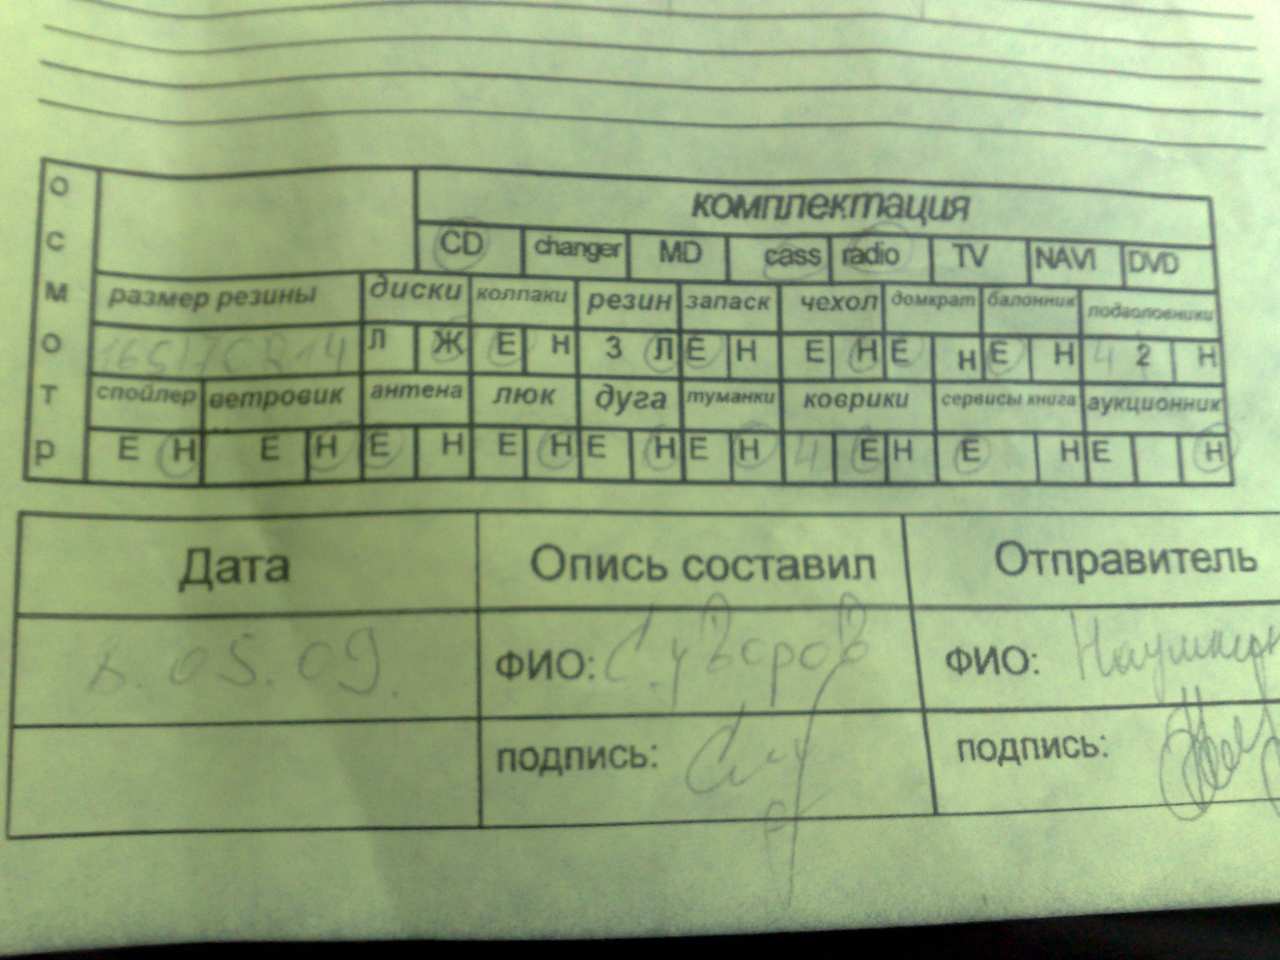 ОСМОТР
комплектация
CD changer MD cass radio TV NAVI DVD
размер резины диски колпаки резин запаск чехол домкрат балонник подголовники
165/70R14 Л Ж Е Н З Л Е Н Е Н Е Н Е Н 4 2 Н
спойлер ветровик антена люк дуга туманки коврики сервисы книга аукционник
Е Н Е Н Е Н Е Н Е Н Е Н 4 Е Н Е Н Е Н
Дата Опись составил Отправитель
05.09. ФИО: Суворов ФИО:
подпись: подпись: